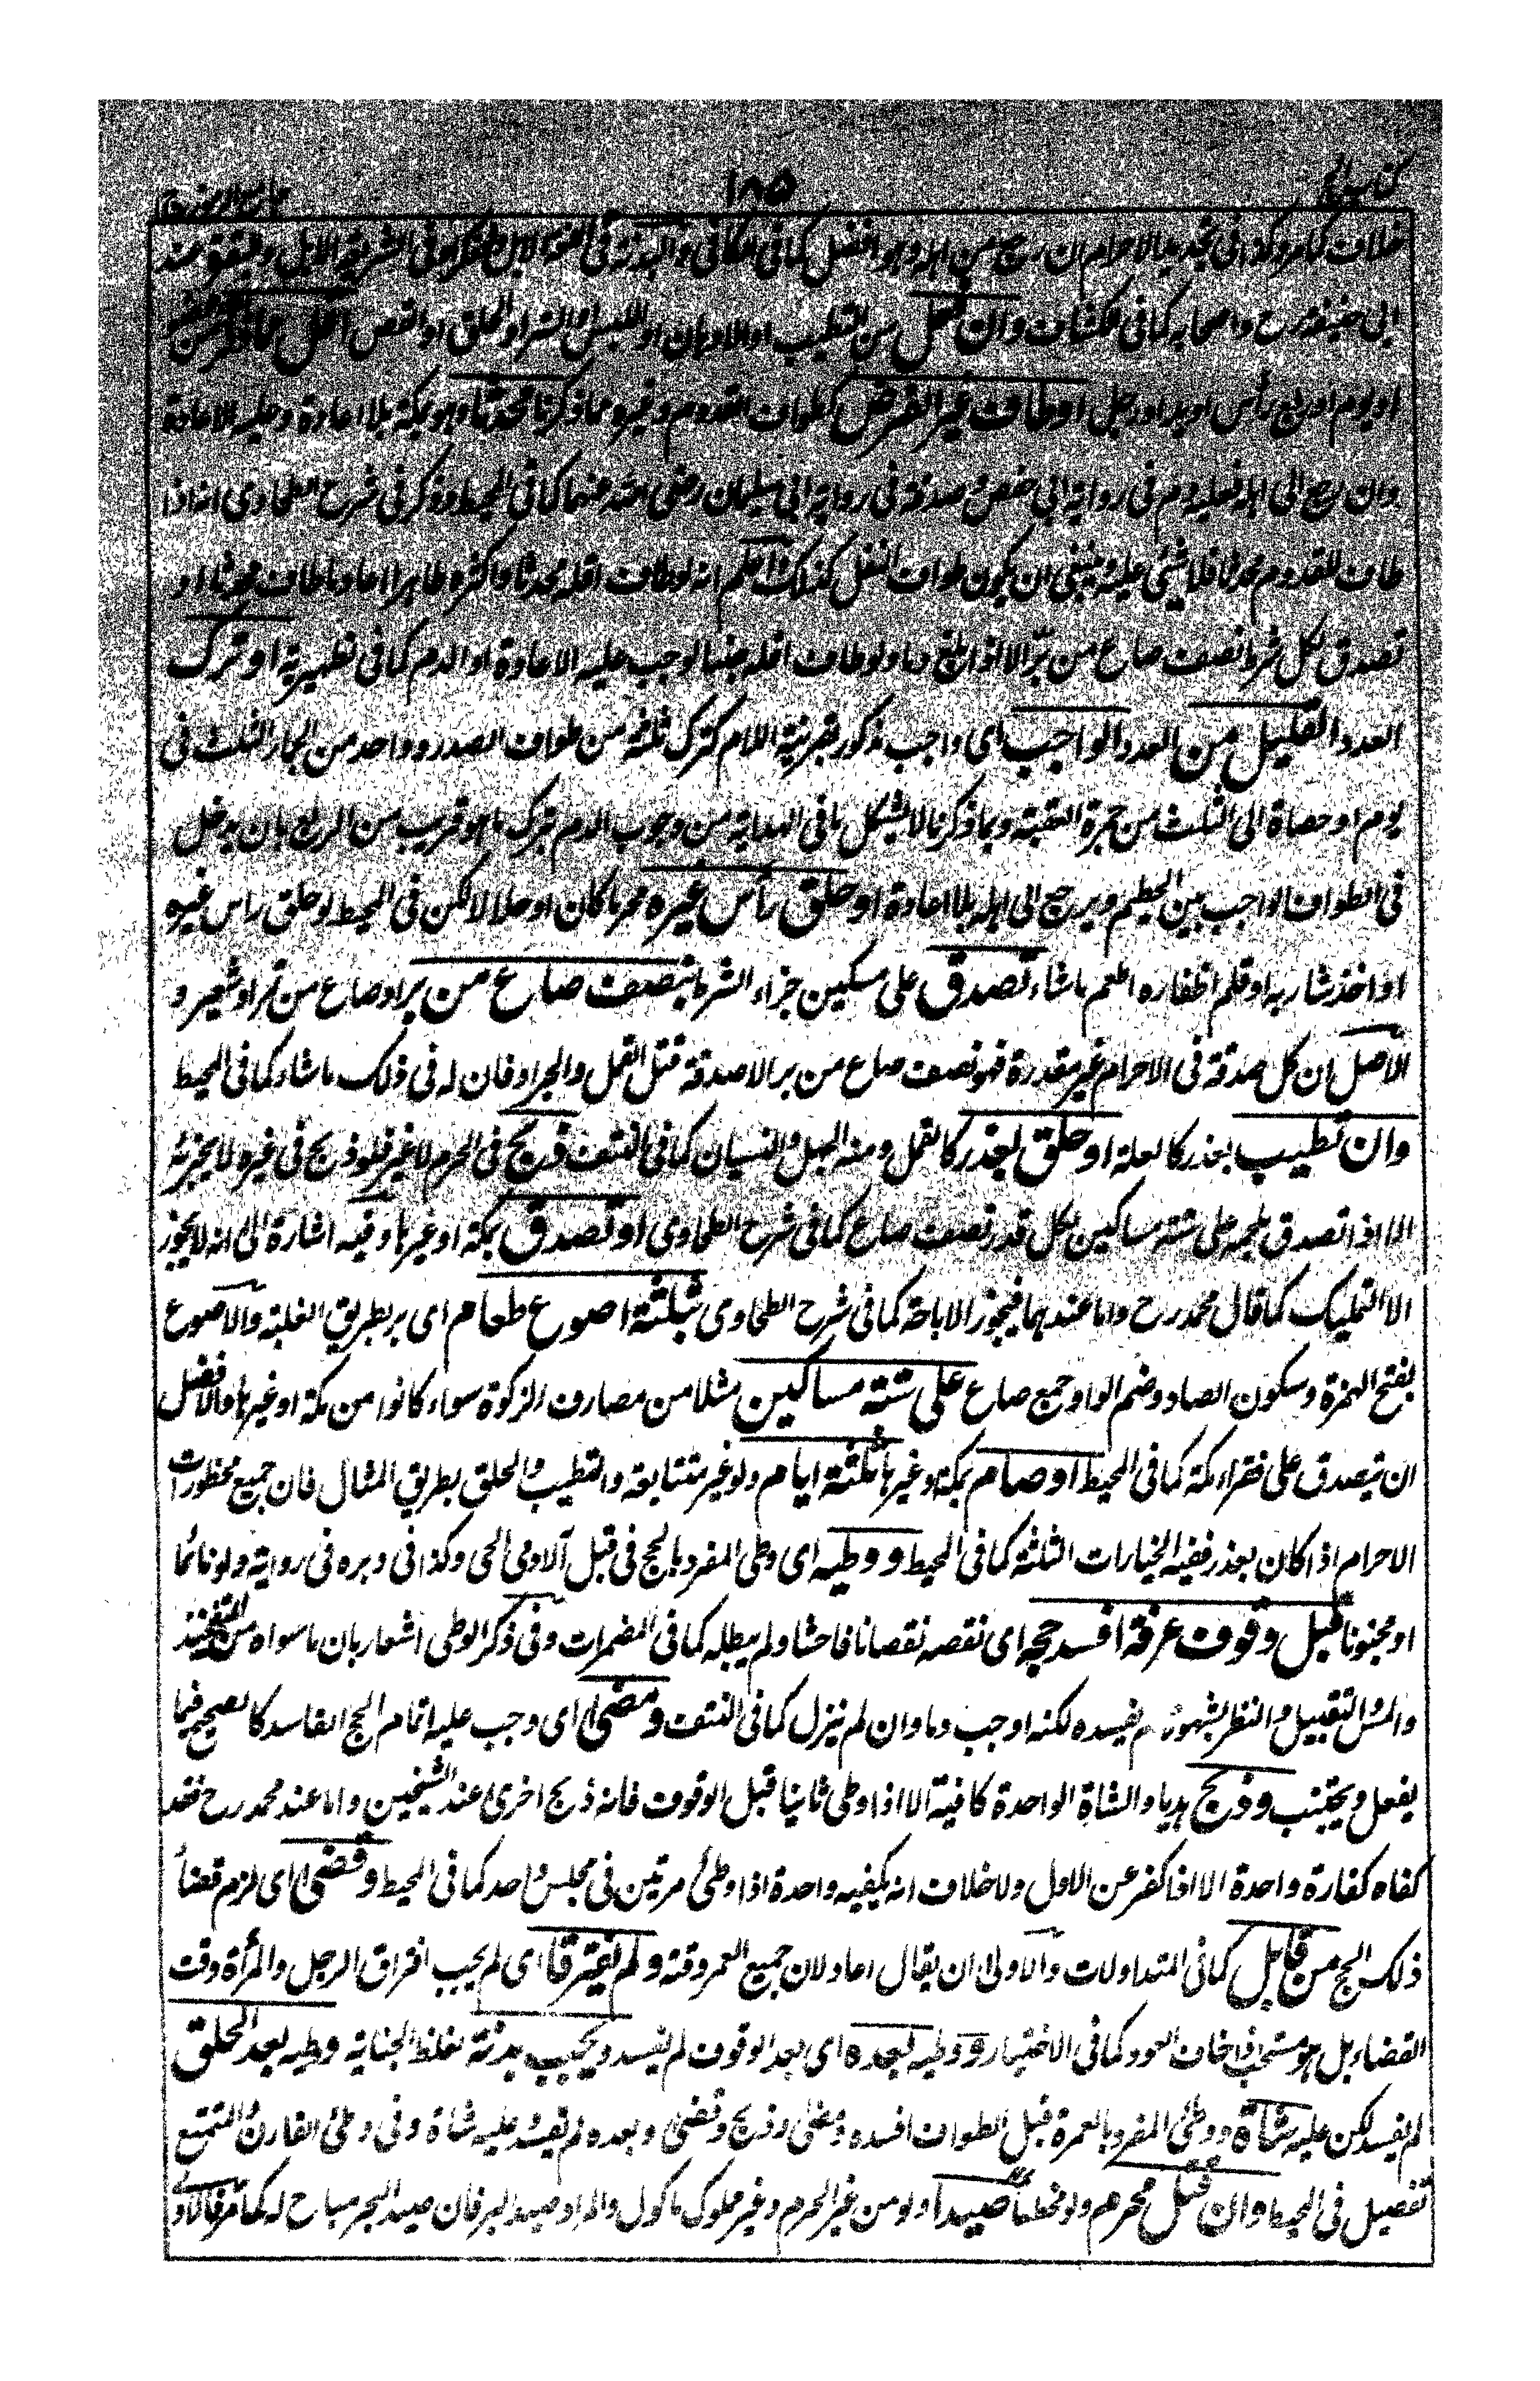 كتاب الحج ١٨٥ جامع الرموز
كما مر وكذا في تجديد الاحرام ان رجع من اهله وهو افضل كما في الكافي والبدنة في اللغة الابل وفي الشريعة الابل والبقر عند
ابي حنيفة رح واصحابه كما في الكشاف وان فعل من التطيب او الادهان او اللبس او الستر او الحلق او القص اقل مما ذكر من عضو
او يوم او ربع رأس او يد او رجل او طاف غير الفرض كطواف القدوم وغيره مما ذكرنا محدثا وهو بمكة بلا اعادة وعليه الاعادة
وان رجع الى اهله فعليه دم في رواية ابي حفص وصدقة في رواية ابي سليمان رضي الله عنهما كما في المحيط وذكر في شرح الطحاوي انه اذا
طاف للقدوم محدثا فلا شئ عليه وينبغي ان يكون طواف النفل كذلك واعلم انه لو طاف اقله محدثا واكثره طاهرا اعاد ما طاف محدثا او
تصدق لكل شوط نصف صاع من بر الا اذا بلغ دما ولو طاف اقله جنبا لوجب عليه الاعادة او الدم كما في الظهيرية او ترك
العدد القليل من العدد الواجب اى واجب مذكور بقرينة اللام كترك ثلثة من طواف الصدر وواحد من الجمار الثلث فى
يوم او حصاة الى الثلث من جمرة العقبة وبما ذكرنا لا يشكل ما فى الهداية من وجوب الدم بترك ما هو قريب من الربع بان يدخل
فى الطواف الواجب بين الحطيم ويرجع الى اهله بلا اعادة او حلق رأس غيره محرما كان او حلالا لكن فى المحيط لو حلق راس غيره
او اخذ شاربه او قلم اظفاره اطعم ما شاء تصدق على مسكين جزاء الشرط بنصف صاع من بر او صاع من تمر او شعير و
الاصل ان كل صدقة فى الاحرام غير مقدرة فهو نصف صاع من بر الا صدقة قتل القمل والجراد فان له فى ذلك ما شاء كما فى المحيط
وان تطيب بعذر كالعلة او حلق لعذر كالقمل ومنه الجهل والنسيان كما فى النتف ذبح فى الحرم لا غير فلو ذبح فى غيره لا يجزئه
الا اذا تصدق بلحمه على ستة مساكين لكل قدر نصف صاع كما فى شرح الطحاوى او تصدق بمكة او غيرها وفيه اشارة الى انه لا يجوز
الا التمليك كما قال محمد رح واما عندهما فيجوز الاباحة كما فى شرح الطحاوى بثلثة اصوع طعام اى بر بطريق الغلبة والاصوع
بفتح الهمزة وسكون الصاد وضم الواو جمع صاع على ستة مساكين مثلا من مصارف الزكوة سواء كانوا من مكة او غيرها والافضل
ان يتصدق على فقراء مكة كما فى المحيط او صام بمكة وغيرها ثلثة ايام ولو غير متتابعة والتطيب والحلق بطريق المثال فان جميع محظورات
الاحرام اذا كان بعذر ففيه الخيارات الثلثة كما فى المحيط ووطيه اى وطى المفرد بالحج فى قبل الادمى الحى وكذا فى دبره فى رواية ولو نائما
او مجنونا قبل وقوف عرفة افسد حجه اى نقصه نقصانا فاحشا ولم يبطله كما فى المضمرات وفى ذكر الوطى اشعار بان ما سواه من التفخيذ
والمس والتقبيل والنظر بشهوة لم يفسده لكنه اوجب دما وان لم ينزل كما فى النتف ومضى اى وجب عليه اتمام الحج الفاسد كالصحيح فيما
يفعل ويجتنب وذبح هديا والشاة الواحدة كافية الا اذا وطى ثانيا قبل الوقوف فانه ذبح اخرى عند الشيخين واما عند محمد رح فقد
كفاه كفارة واحدة الا اذا كفر عن الاول ولا خلاف انه يكفيه واحدة اذا وطئ مرتين فى مجلس واحد كما فى المحيط وقضى اى لزم قضاء
ذلك الحج من قابل كما فى المتداولات والاولى ان يقال اعاد لان جميع العمر وقته ولم يفترقا اى لم يجب افتراق الرجل والمرأة وقت
القضاء بل هو مستحب اذا خاف العود كما فى الاختيار ووطيه بعده اى بعد الوقوف لم يفسد ويجب بدنة لغلظ الجناية وطيه بعد الحلق
لم يفسد لكن عليه شاة ووطئ المفرد بالعمرة قبل الطواف افسده ومضى وذبح وقضى وبعده لم يفسد وعليه شاة وفى وطئ القارن والمتمتع
تفصيل فى المحيط وان قتل محرم ولو مخطأ صيدا ولو من غير الحرم وغير مملوك ماكول والمراد صيد البر فان صيد البحر مباح له كما مر